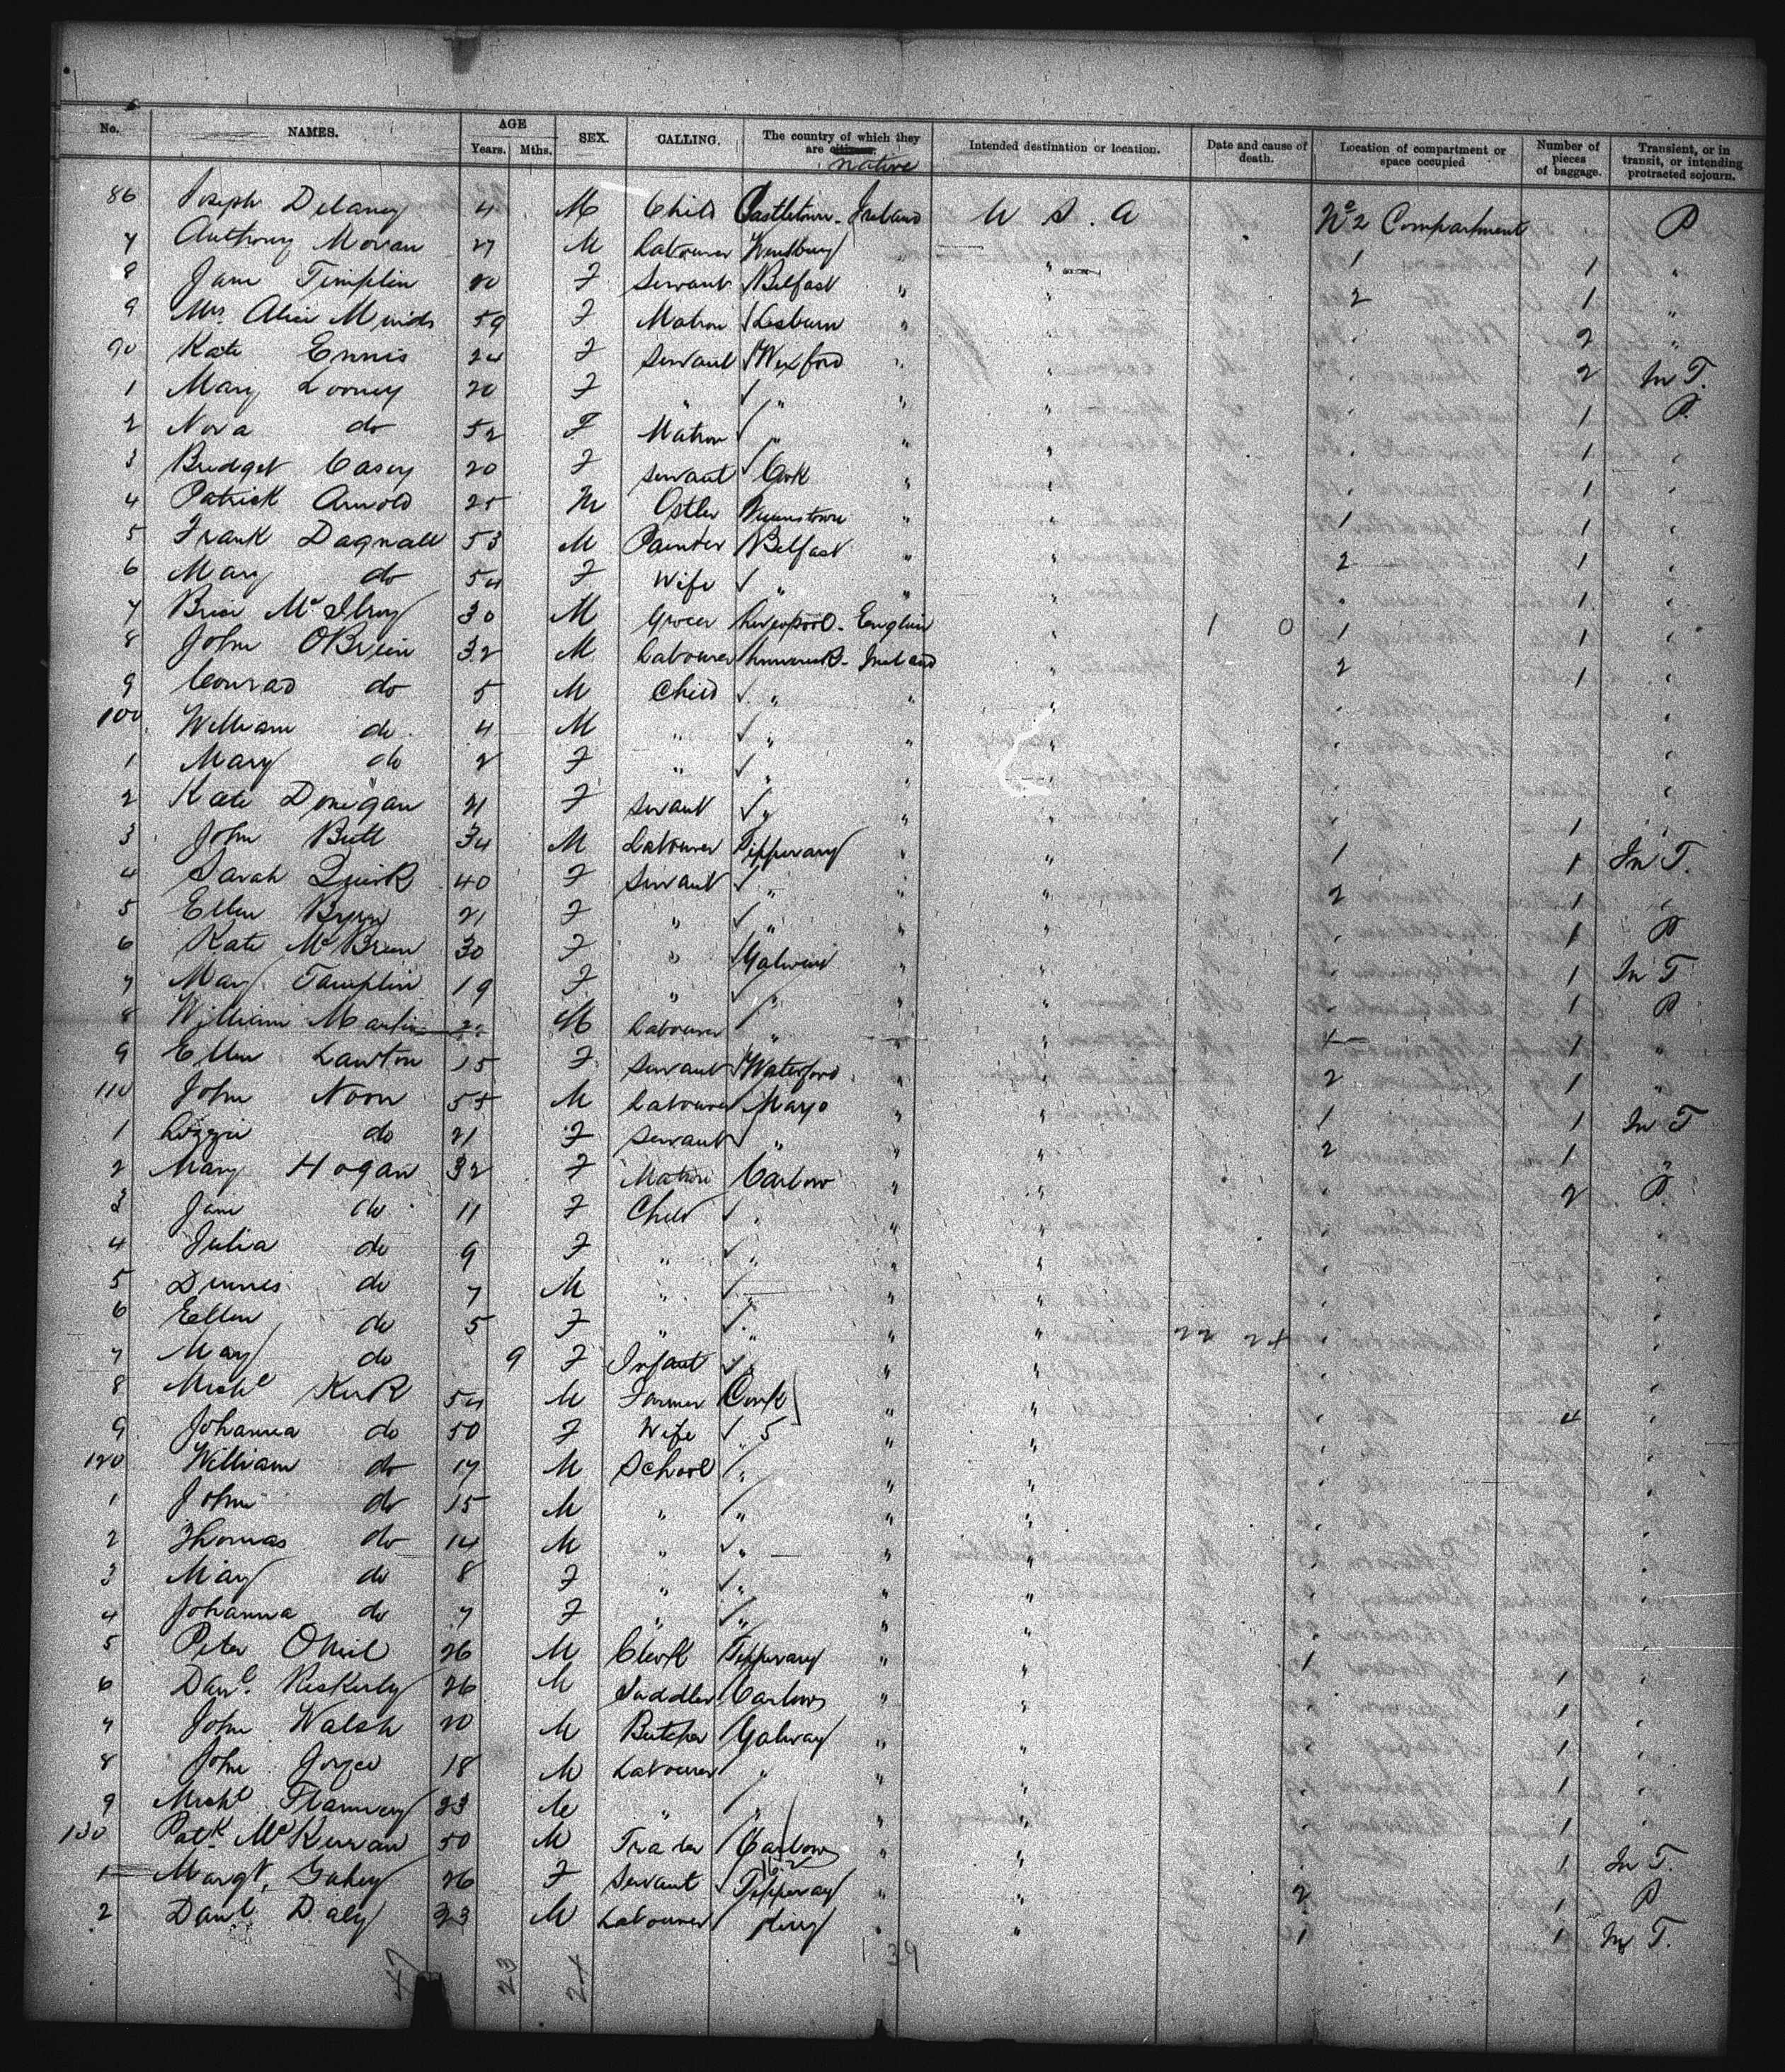 No. NAMES. AGE Years. Mths. SEX. CALLING. The country of which they are citizens native Intended destination or location. Date and cause of death. Location of compartment or space occupied Number of pieces of baggage. Transient, or in transit, or intending protracted sojourn.
86 Joseph Delaney 4 M Child Castletown - Ireland U S. A No 2 Compartment P
7 Anthony Moran 27 M Labourer " 1 1 "
8 Jane Timplin 20 F Servant Belfast " " 2 1 "
9 Mrs. Alice 59 F Matron Lesburn " " " 2 "
90 Kate Ennis 24 F Servant Wexford " " " 2 In T.
1 Mary Looney 20 F " " " " " 1 P.
2 Nora do 52 F Matron " " " " 1 "
3 Bridget Casey 20 F Servant Cork " " " 1 "
4 Patrick Arnold 25 M Ostler Queenstown " " 1 1 "
5 Frank Dagnall 53 M Painter Belfast " " 2 1 "
6 Mary do 54 F Wife " " " " 1 "
7 Brice McIlroy 30 M Grocer Liverpool - England " 1 0 1 1 "
8 John OBrien 32 M Labourer Limerick - Ireland " 2 1 "
9 Conrad do 5 M Child " " " " "
100 William do 4 M " " " " " "
1 Mary do 2 F " " " " " "
2 Kate Donegan 21 F Servant " " " " 1 "
3 John Butt 34 M Labourer Tipperary " " 1 1 In T.
4 Sarah Quirk 40 F Servant " " " 2 1 "
5 Ellen Byrn 21 F " " " " " 1 P
6 Kate McBrien 30 F " Galway " " " 1 In T
7 Mary Tamplin 19 F " " " " " 1 P
8 William Martin 22 M Labourer " " " 1 1 "
9 Ellen Lawton 15 F Servant Waterford " " 2 1 "
110 John Noon 55 M Labourer Mayo " " 1 1 In T
1 Lizzie do 21 F Servant " " " 2 1 "
2 Mary Hogan 32 F Matron Carlow " " " 2 P.
3 Jane do 11 F Child " " " " "
4 Julia do 9 F " " " " " "
5 Dennis do 7 M " " " " " "
6 Ellen do 5 F " " " " 22 24 " "
7 Mary do 9 F Infant " " " " "
8 Michl Kirk 54 M Farmer Cork " " " 4 "
9 Johanna do 50 F Wife " 5 " " " "
120 William do 17 M School " " " " "
1 John do 15 M " " " " " "
2 Thomas do 14 M " " " " " "
3 Mary do 8 F " " " " " "
4 Johanna do 7 F " " " " " "
5 Peter ONeil 26 M Clerk Tipperary " " 1 1 "
6 Danl. 26 M Saddler Carlow " " " 1 "
7 John Walsh 20 M Butcher Galway " " " 1 "
8 John Joyce 18 M Labourer " " " " 1 "
9 Michl Flannery 23 M " " " " " 1 "
130 Patk McKurran 50 M Trader Carlow " " " 1 In T.
16.2
1 Margt. Gahey 26 F Servant Tipperary " " 2 1 P
2 Danl Daly 23 M Labourer King " " 1 1 In T.
47 23 24 1 39